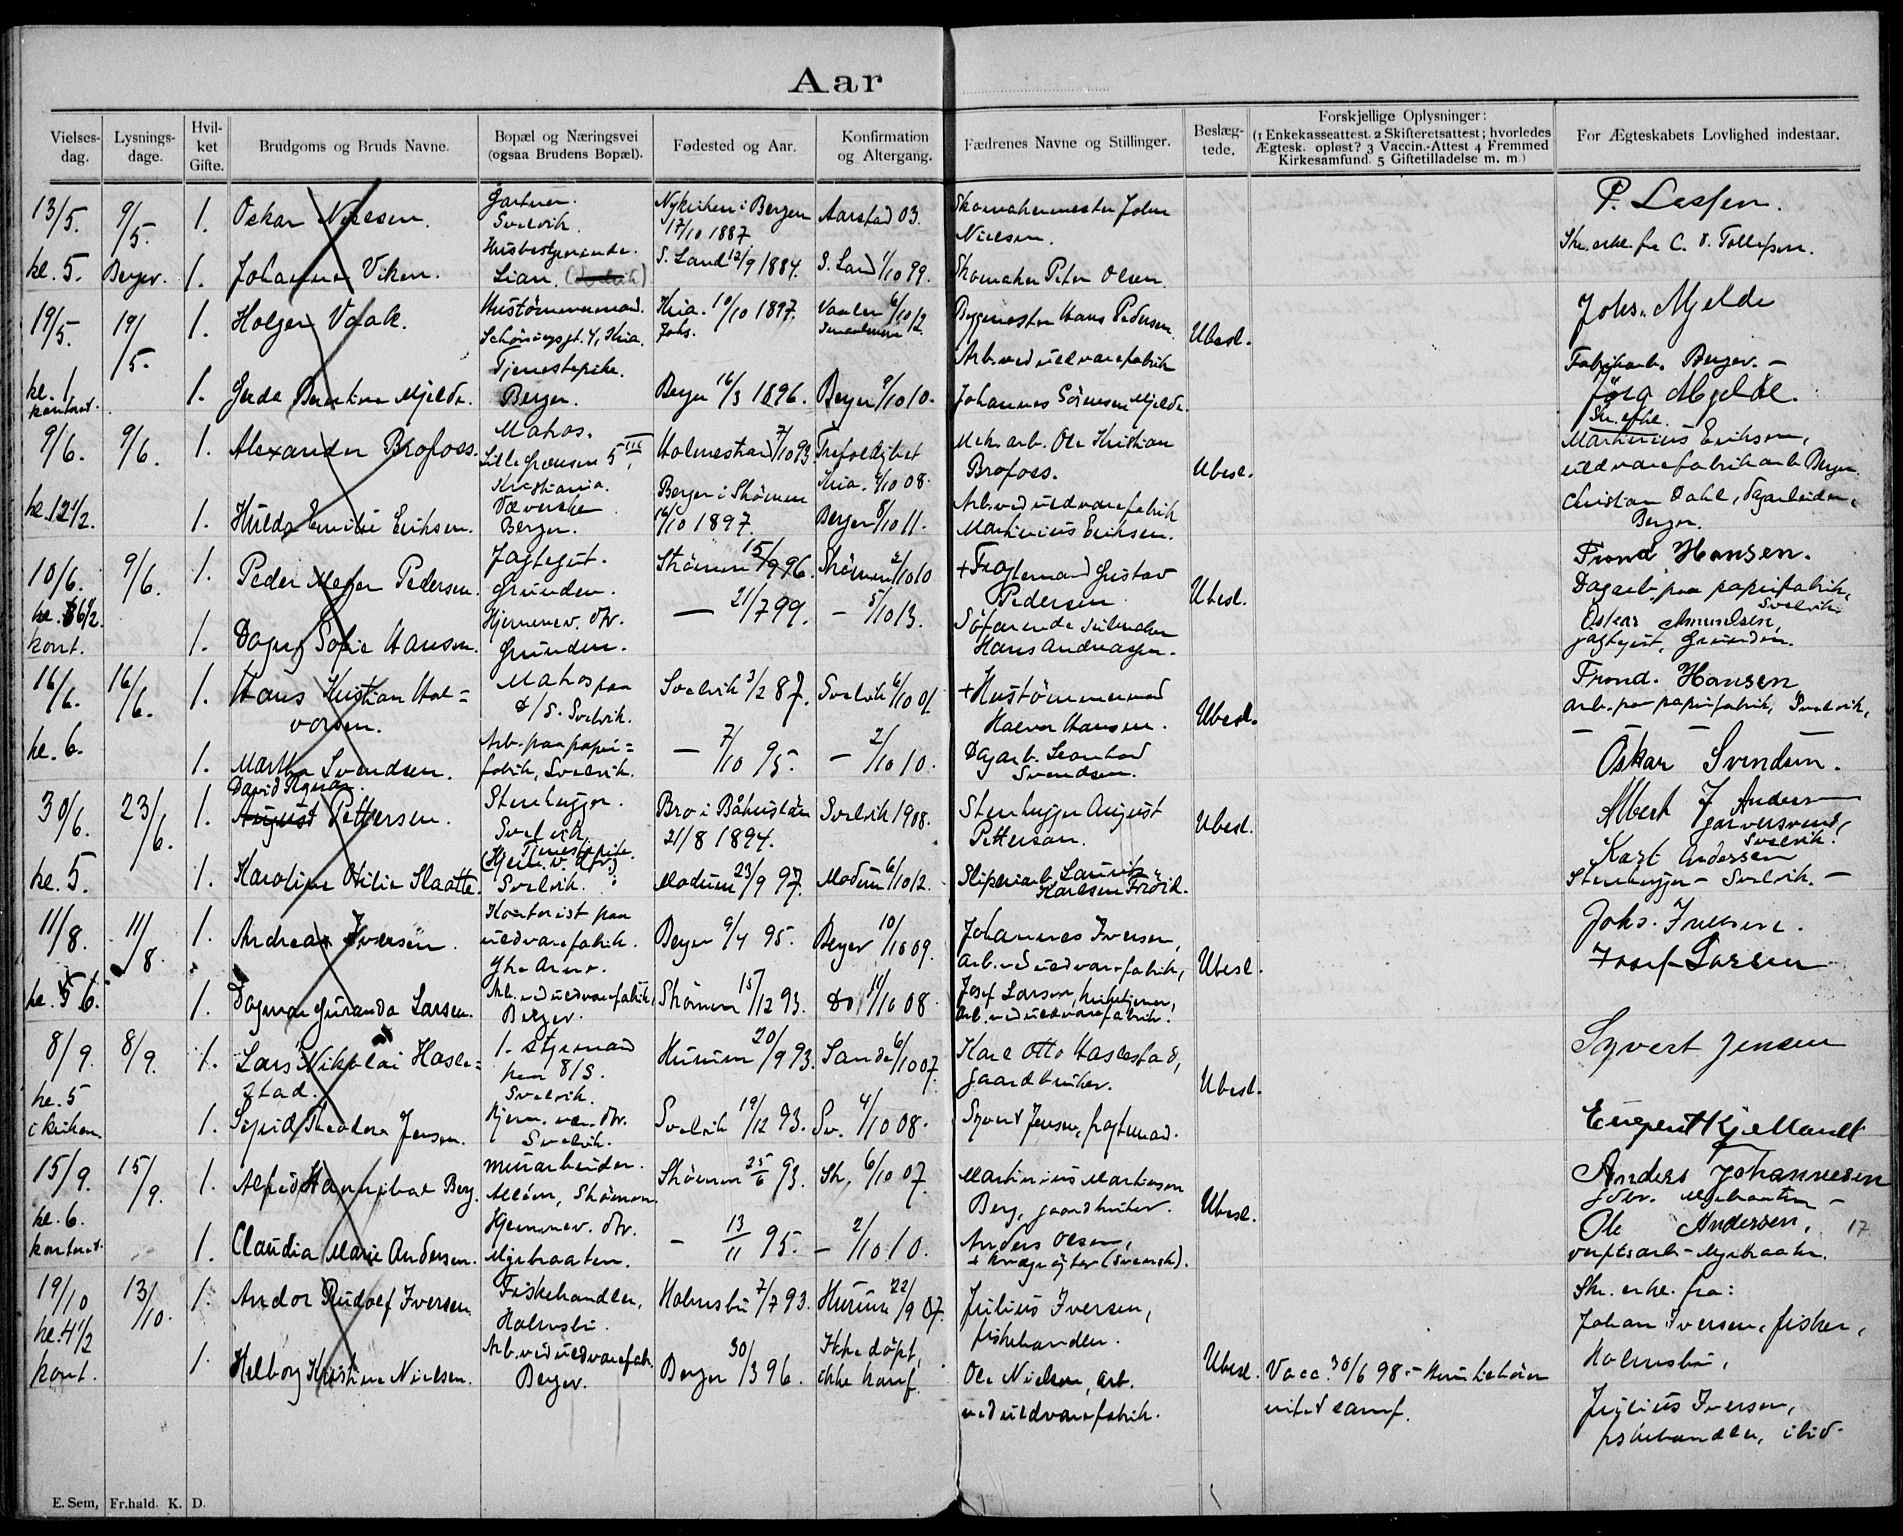 Aar
Vielses-dag. Lysnings-dage. Hvil-ket Gifte. Brudgoms og Bruds Navne. Bopæl og Næringsvei (ogsaa Brudens Bopæl). Fødested og Aar. Konfirmation og Altergang. Fædrenes Navne og Stillinger. Beslæg-tede. Forskjellige Oplysninger: (1 Enkekasseattest. 2 Skifteretsattest; hvorledes Ægtesk. opløst? 3 Vaccin.-Attest 4 Fremmed Kirkesamfund. 5 Giftetilladelse m. m) For Ægteskabets Lovlighed indestaar.
13/5. 9/5. 1. Oskar Nielsen. Gartner. Svelvik. Nykirken i Bergen 17/10 1887 Aarstad 03. Skomakermester John Nielsen. P. Lassen.
Sk. erkl. fra C. O. Tollefsen.
kl. 5. Berger. 1. Johanna Viken. Husbestyrerinde. Lian. S. Land 12/9 1884. S. Land 1/10 99. Skomaker Peter Olsen.
19/5. 19/5. 1. Holger Vaak. Hustømmermand. Schøningsgt. 4, Kria. Kria. 10/10 1897. Johs. Vaaler 6/10 12 Byggmester Hans Pedersen. Ubesl. Johs. Mjelde
Fabrikarb. Berger. -
kl. 1 kontoret. 1. Gerda Berntine Mjelde. Tjenestepike. Berger. Berger 16/3 1896. Berger 9/10 10. Arb. ved uldvarefabrik Johannes Sörensen Mjelde. Jörg Mjelde.
9/6. 9/6. 1. Alexander Brofoss. Matros. Lille Grænsen 5 III, Kristiania. Holmestrand 7/10 93. Trefoldighet Kria. 4/10 08. Mek. arb. Ole Kristian Brofoss. Ubesl. Sk. erkl. Martinius Eriksen, uldvarefabrikarb. Berger.
kl. 12 1/2. 1. Hulda Emilie Eriksen. Væverske Berger. Berger i Strömm 16/10 1897. Berger 8/10 11. Arb. ved uldvarefabrik Martinius Eriksen. Christian Dahl, Dagarbeider, Berger.
10/6. 9/6. 1. Peder Meyer Pedersen. Jagtegut. Grunden. Strömm 15/9 96. Strömm 2/10 10 + Fragtemand Gustav Pedersen. Ubesl. Trond Hansen. Dagarb. paa papirfabrik, Svelvik.
kl. 6 1/2. kont. 1. Dagny Sofie Hansen. Hjemmev. dtr. Grunden. — 21/7 99. — 5/10 13. Söfarende Hans Andreassen. Oskar Amundsen, jagtegut, Grunden.
16/6. 16/6. 1. Hans Kristian Hal-vorsen. Matros paa D/S. Svelvik. Svelvik 3/2 87. Svelvik 6/10 01. + Hustömmermand Halvor Hansen. Ubesl. Trond. Hansen arb. paa papirfabrik, Svelvik,
kl. 6. 1. Martha Svendsen. Arb. paa papir-fabrik, Svelvik. — 7/10 95. — 2/10 10. Dagarb. Leonhard Svendsen. Oskar Svendsen.
30/6. 23/6. 1. David Ragnar August Pettersen. Stenhugger. Svelvik. Bro i Båhuslän 21/8 1894. Svelvik 1908. Stenhugger August Petterson. Ubesl. Albert J Andersen garversvend, Svelvik.
kl. 5. 1. Karoline Otilie Slaatte. Tjenestepike. (Hjem. v. dtr) Svelvik. Modum 23/9 97. Modum 6/10 12. Sliperiarb. Laurits Karlsen Fröid. Karl Andersen Stenhugger - Svelvik. -
11/8. 11/8. 1. Andreas Iversen. Kontorist paa uldvarefabrik. Berger 9/4 95. Berger 10/10 09. Johannes Iversen, arb. ved uldvarefabrik, Ubesl. Johs. Iversen. Josef Larsen
kl. 6. 1. Dagmar Guranda Larsen. Arb. ved uldvarefabrik, Berger. Strömm 15/12 93. Do 4/10 08. Josef Larsen, kirketjener, arb. ved uldvarefabrik.
8/9. 8/9. 1. Lars Nikolai Hasle-stad. 1. Styrmand paa S/S. Svelvik. Hurum 20/9 93. Sande 6/10 07. Karl Otto Haslestad, gaardbruker. Ubesl. Syvert Jensen
kl. 5 i kirken. 1. Sigrid Theodora Jensen. Hjem. vær. dtr. Svelvik. Svelvik 19/12 93. Sv. 4/10 08. Syvert Jensen, fragtmand.
15/9. 15/9. 1. Alfred Hannibal Berg. Murarbeider. Strömm. Strömm 25/6 93. Str. 6/10 07. Martinius Martinsen Berg, gaardbruker. Ubesl. Anders Johannesen gdbr. Mjebraaten -
kl. 6. kontoret. 1. Claudia Marie Andersen. Hjemmev. dtr. Mjebraaten. — 13/11 95. — 2/10 10. Anders Olsen, (svensk). Ole Andersen, 17 verftsarb. - Mjebraaten.
19/10 13/10. 1. Andor Rudolf Iversen. Fiskehandler, Holmsbu. Holmsbu 7/7 93. Hurum 22/9 07. Julius Iversen, fiskehandler. Sk. erkl. fra: Johan Iversen, fisker, Holmsbu,
kl. 4 1/2 kont. 1. Helborg Kristine Nielsen. Arb. ved uldvarefab. Berger. Berger 30/3 96. Ikke döpt, ikke konf. Ole Nielsen, arb. ved uldvarefabrik. Ubesl. Vacc. 30/6 98. - Julius Iversen, fiskehandler, ibid.
E. Sem, Fr.hald. K. D.